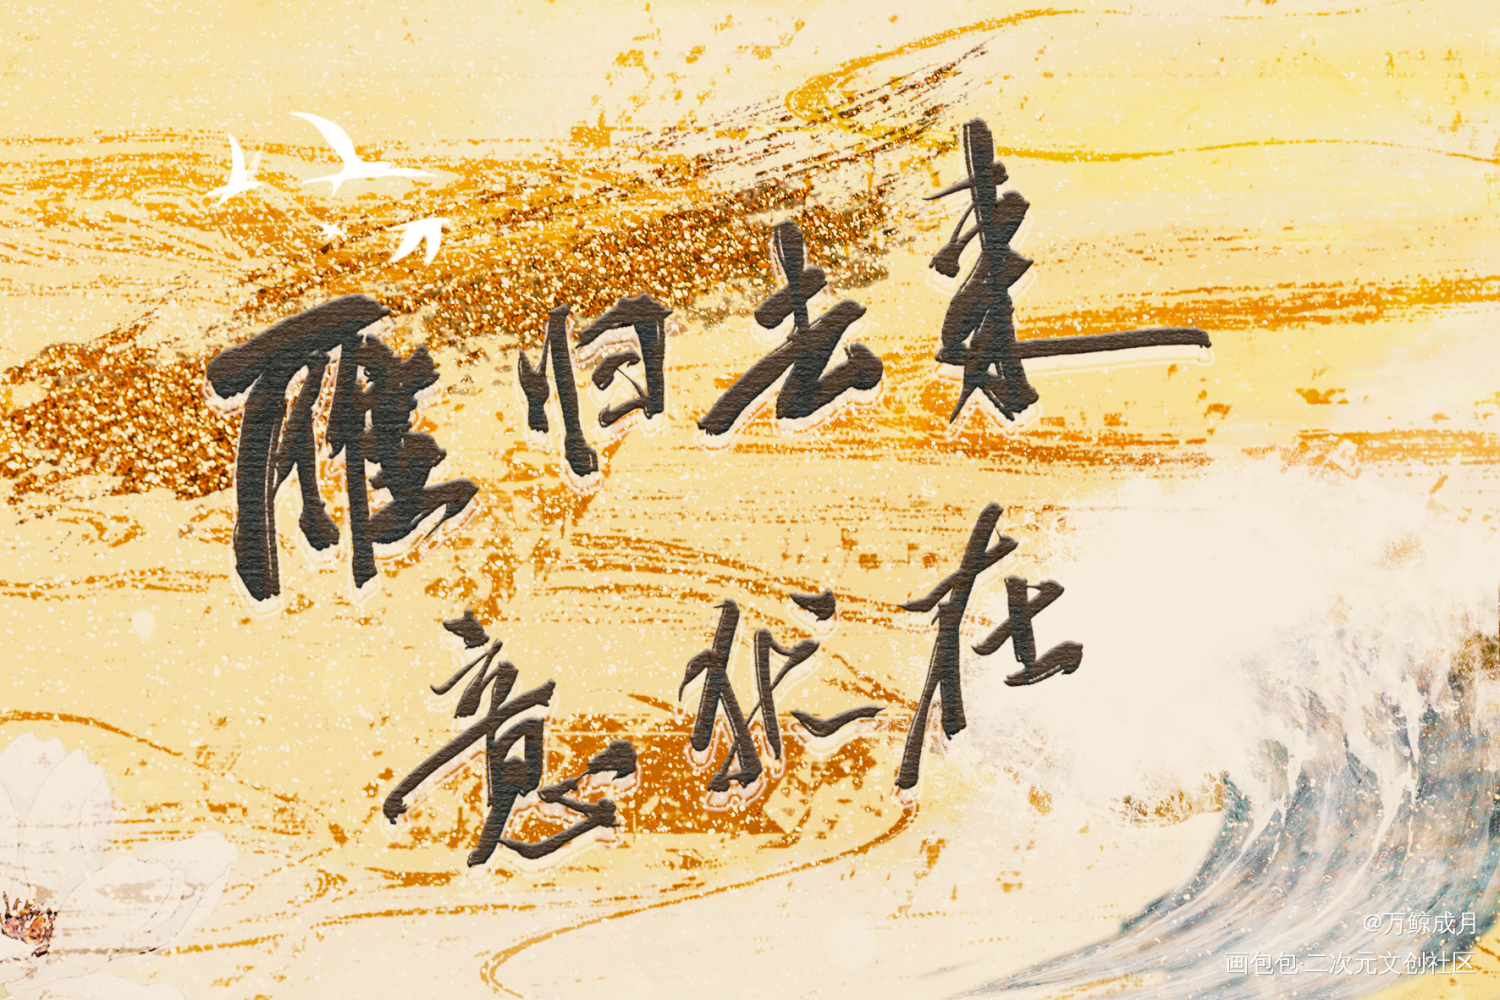 雁归去来
意犹在
@万鲸成月
画包包·二次元文创社区